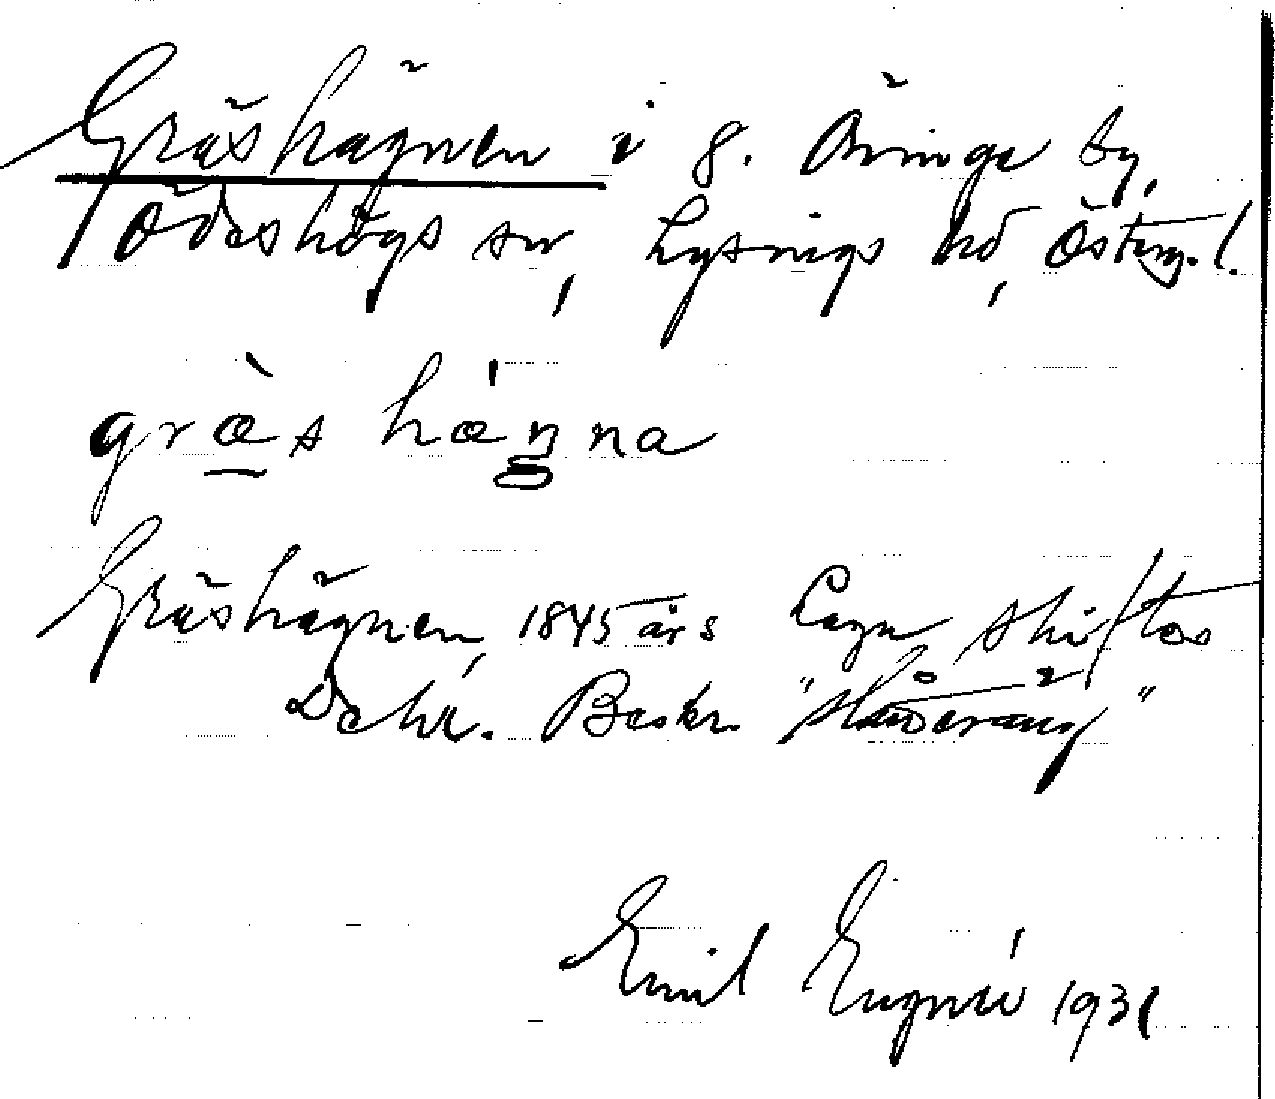 Gräshägnen i g. Öninge by,
Ödeshögs sn, Lysings hd, Österg. l.
græ̀s hǽŋna
Gräshägnen, 1845 års Laga skiftes
Dehl. Beskr. "Hårdvräng"
Emil Eugnér 1931